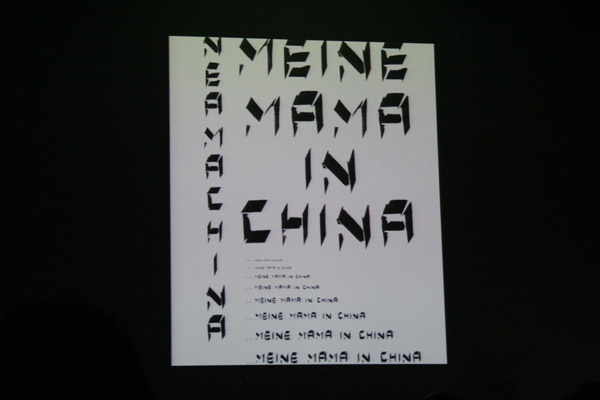 NEAMACHINA
MEINE
MAMA
IN
CHINA
MEINE MAMA IN CHINA
MEINE MAMA IN CHINA
MEINE MAMA IN CHINA
MEINE MAMA IN CHINA
MEINE MAMA IN CHINA
MEINE MAMA IN CHINA